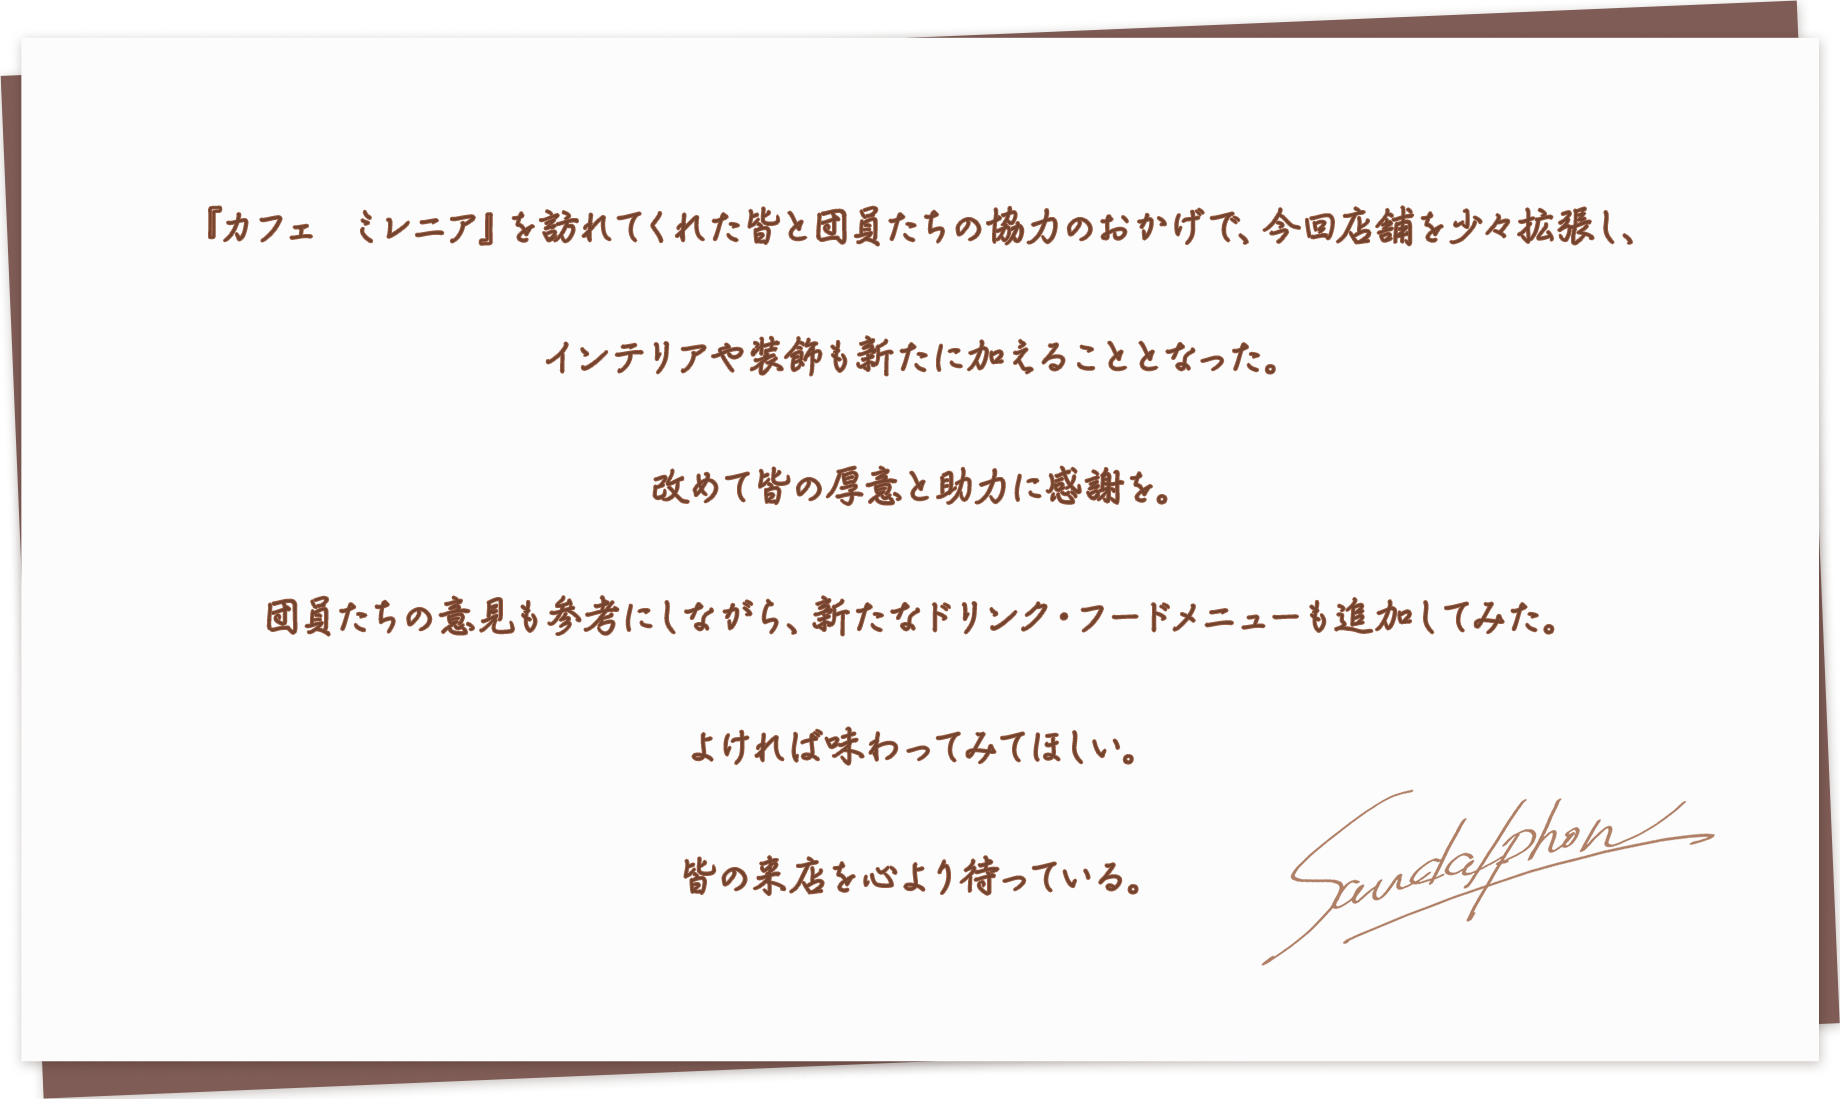 『カフェ　ミレニア』を訪れてくれた皆と団員たちの協力のおかげで、今回店舗を少々拡張し、
インテリアや装飾も新たに加えることとなった。
改めて皆の厚意と助力に感謝を。
団員たちの意見も参考にしながら、新たなドリンク・フードメニューも追加してみた。
よければ味わってみてほしい。
皆の来店を心より待っている。
Sandalphon